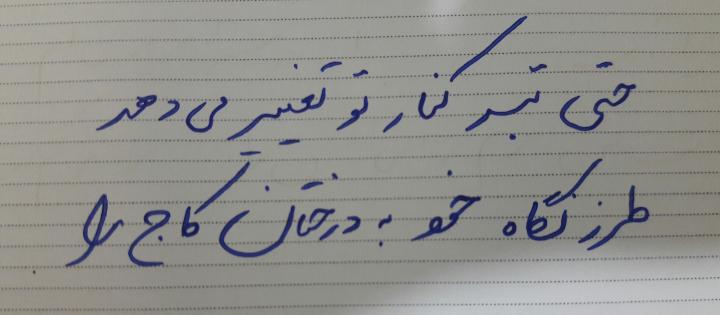 حتی تبر کنار تو تغییر می دهد
طرز نگاه خود به درختان کاج را